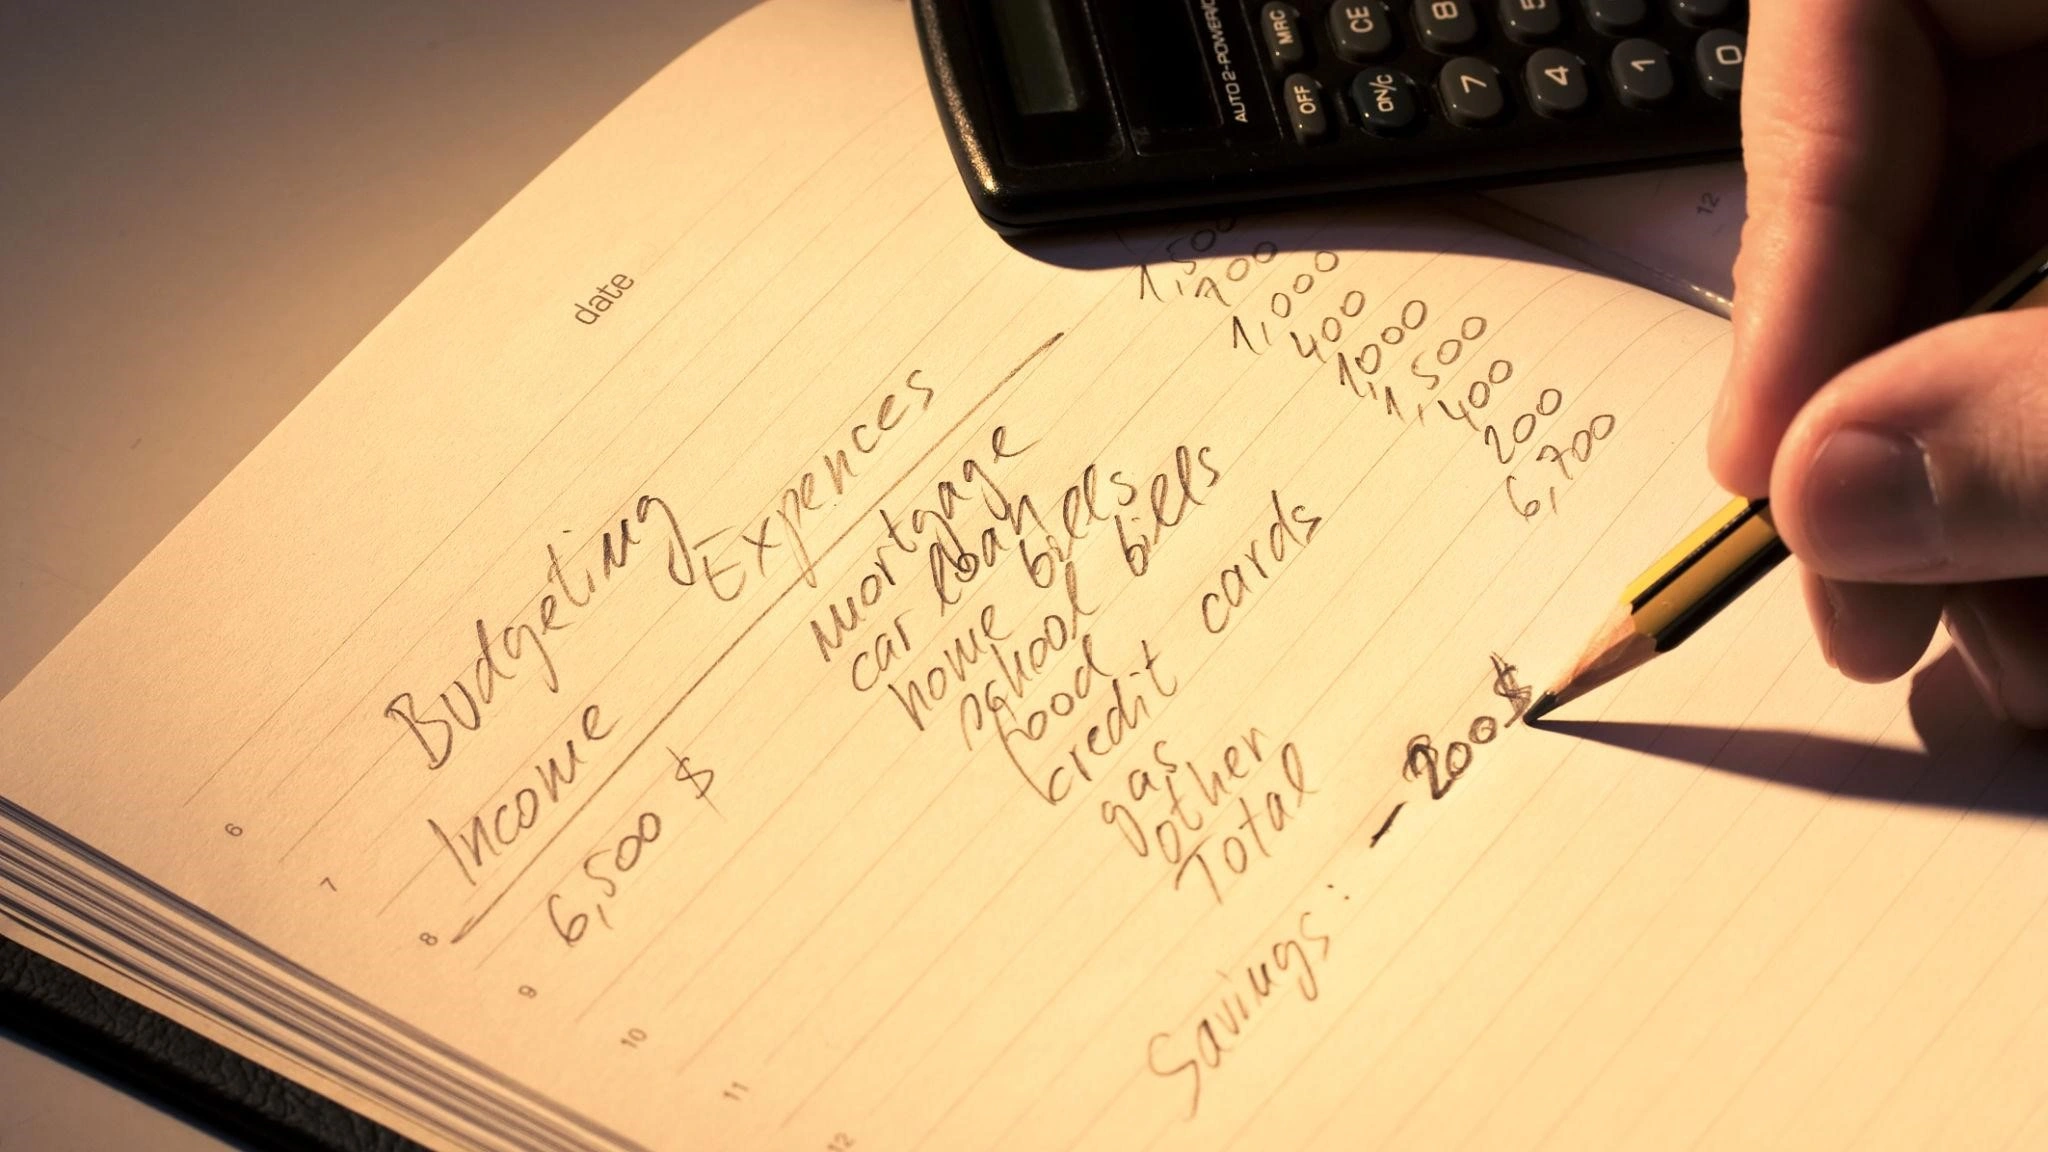 AUTO 2-POWER
MRC CE 8 5
OFF ON/C 7 4 1 0
12
date
Budgeting
Income Expences
6,500 $
mortgage 1,500
car loan 700
home bills 1,000
school bills 400
food 1000
credit cards 1,500
gas 400
other 200
Total 6,700
Savings: - 200 $
6
7
8
9
10
11
12